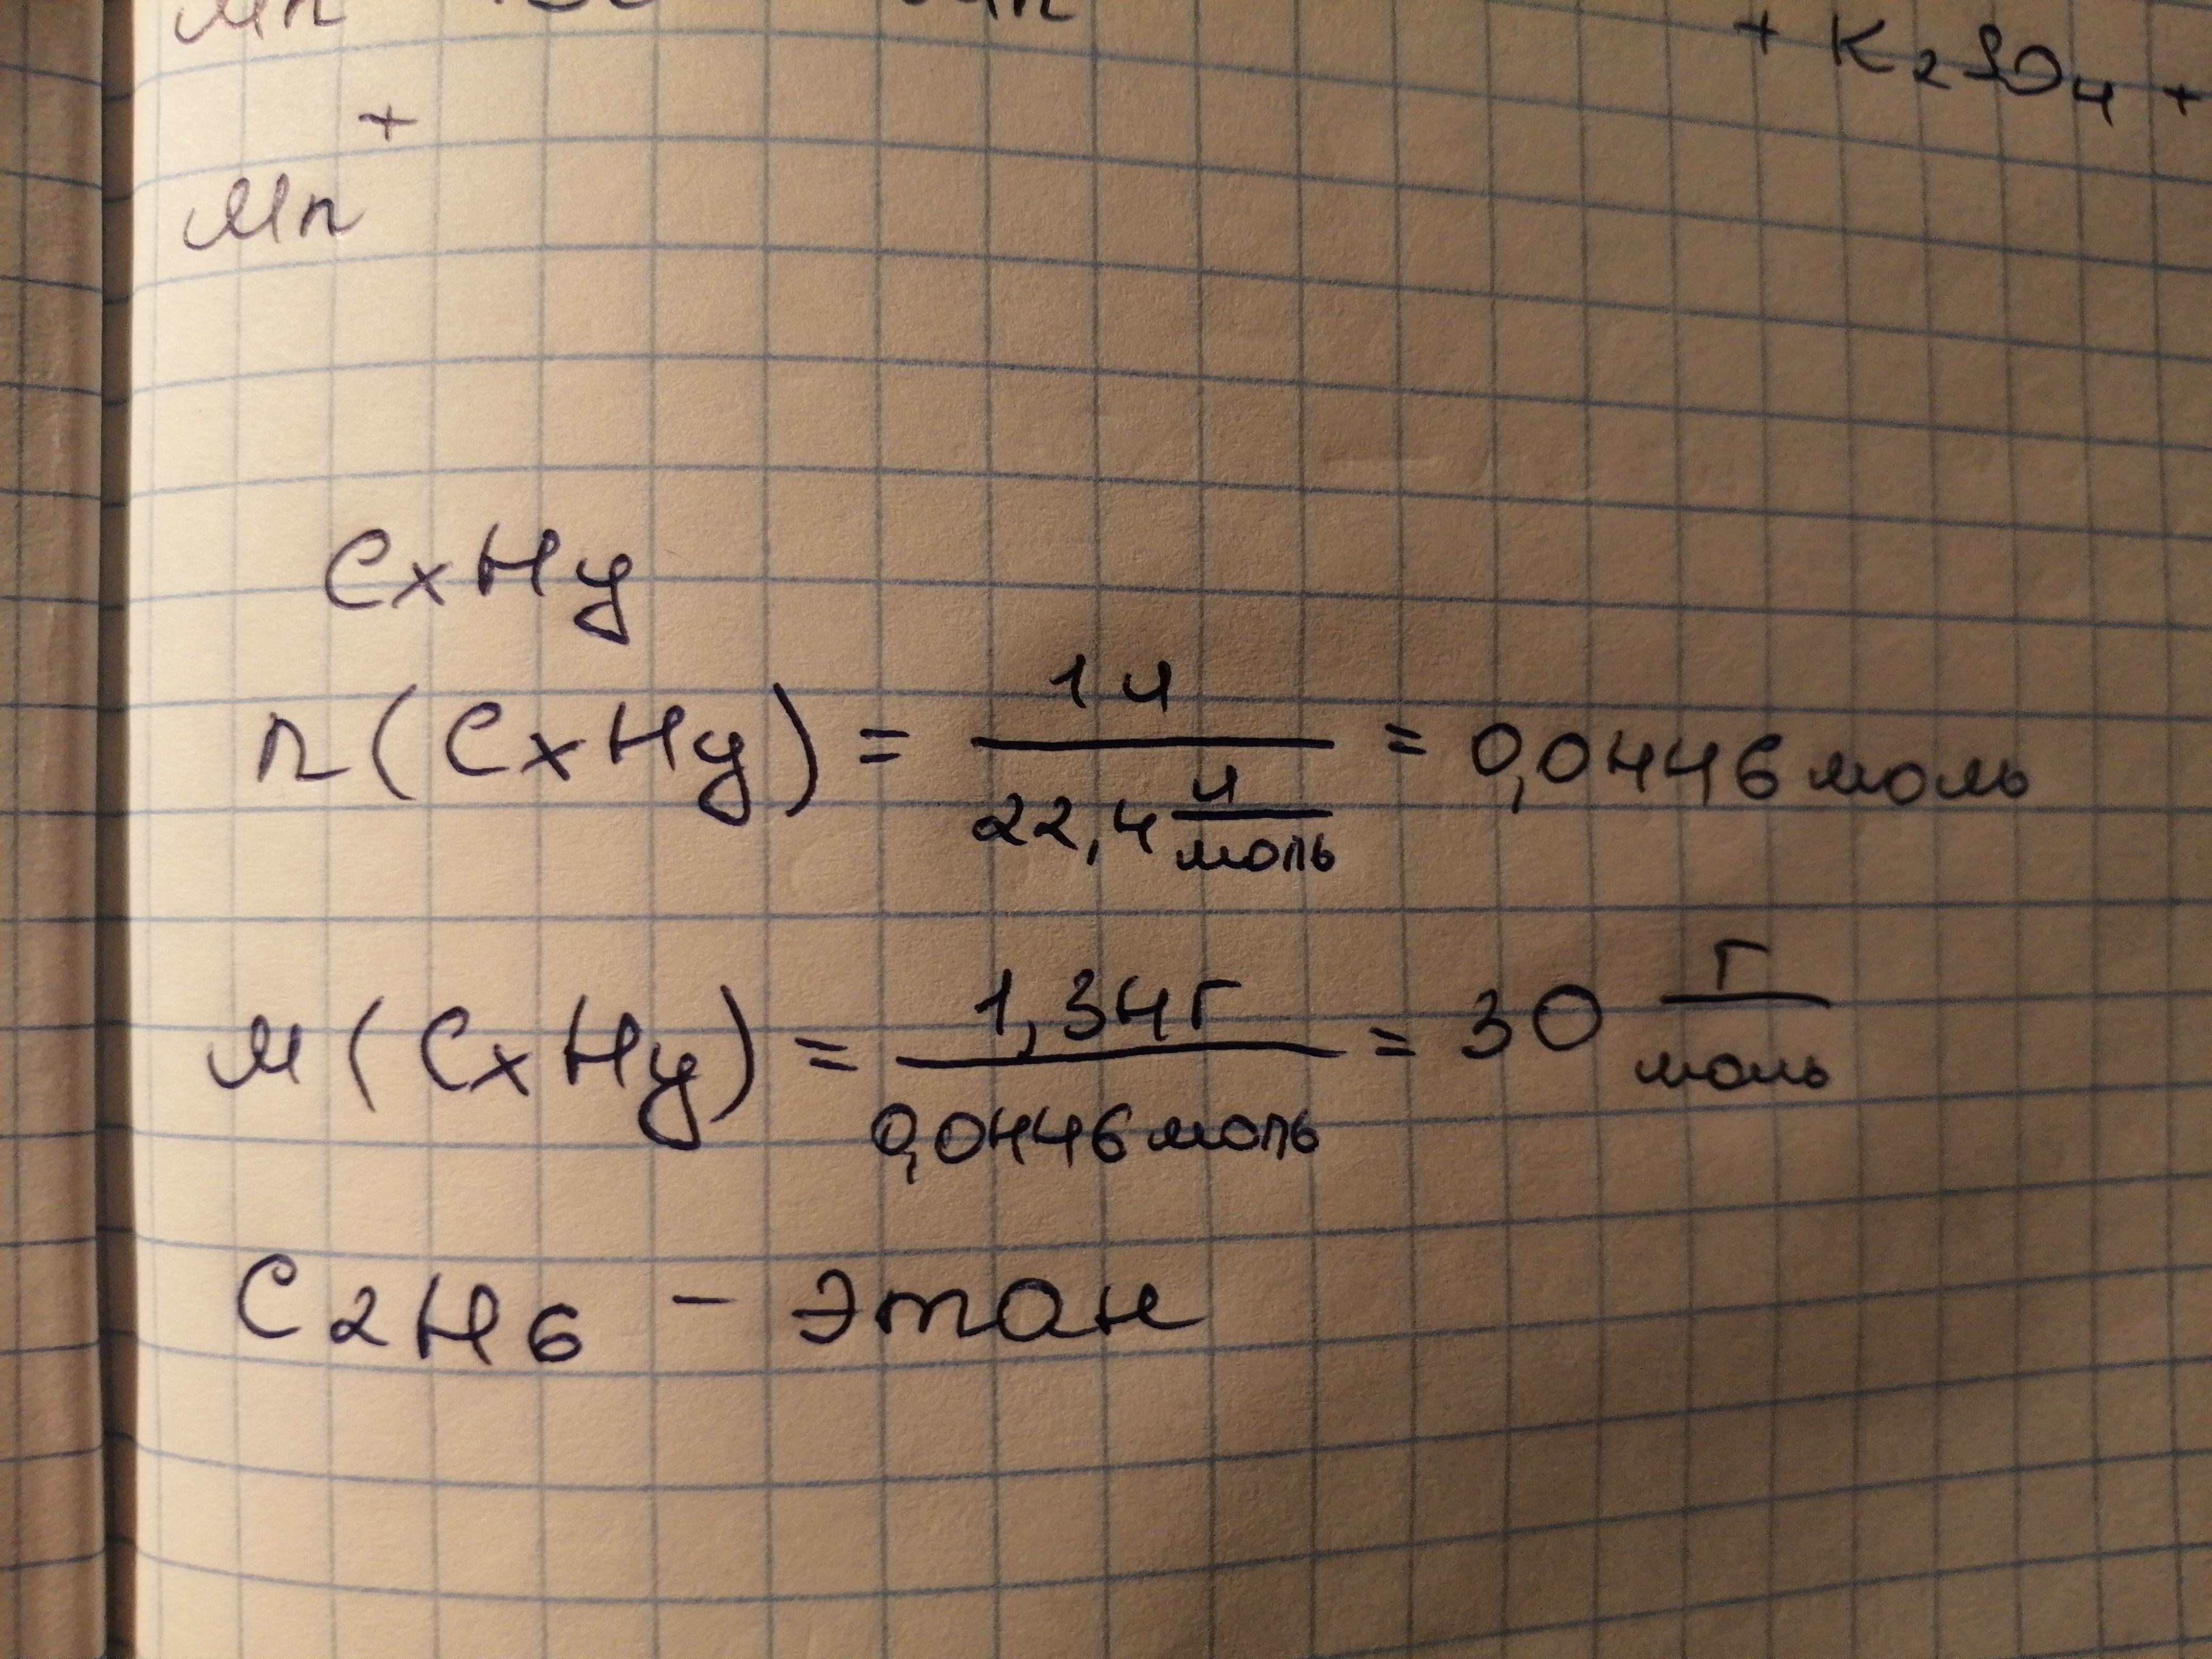 + K2SO4 +
Mn +
CxHy
n(CxHy) = 1л / 22,4 л/моль = 0,0446 моль
M(CxHy) = 1,34г / 0,0446 моль = 30 г/моль
C2H6 – этан